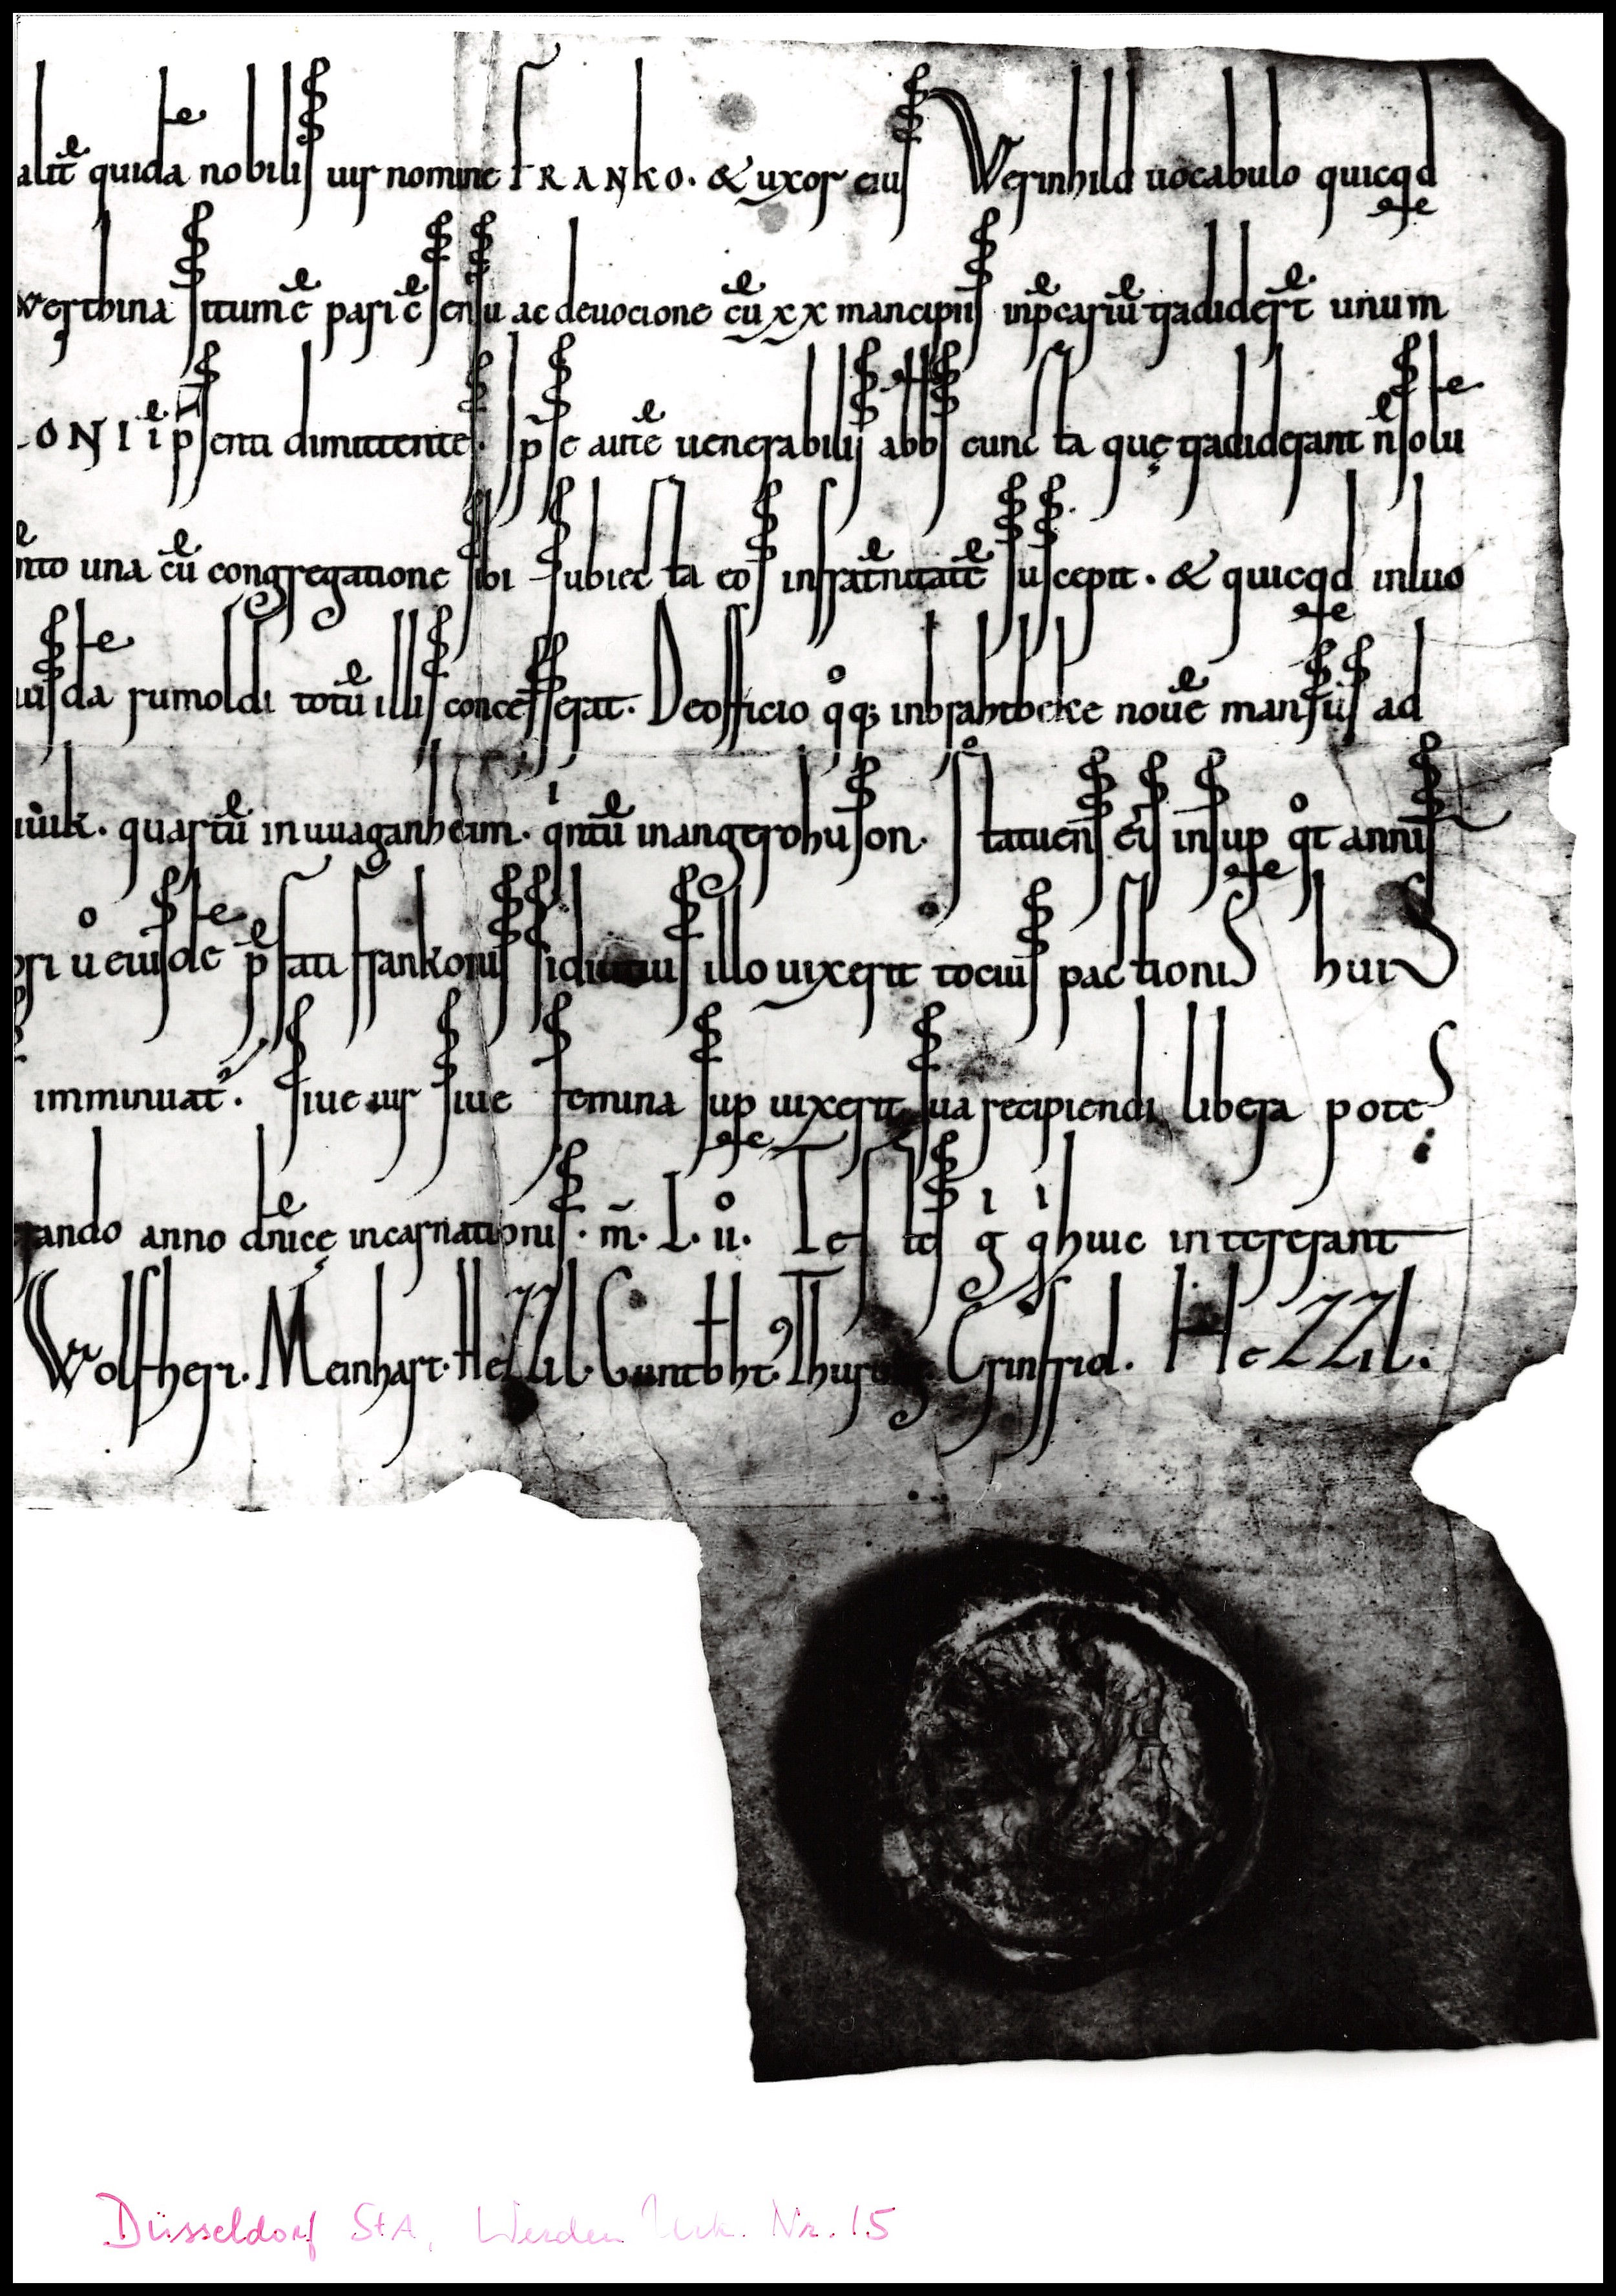 alit̄ quidā nobilis uir nomine FRANKO. & uxor eius Werinhild uocabulo quicqd
Werthina situm ē pari c̄sensu ac deuocione cū xx mancipiis in p̄cariū tradider̄t unum
ONI ī p̄senti dimittentes. Ip̄se autē uenerabilis abbs cuncta quę tradiderant n̄ solū
nto una cū congregatione sibi subiecta eos in frat̄nitatē suscepit. & quicqd in luo
iusdā rumoldi totū illis concesserat. De officio qͦq; in brahtbeke nouē mansus ad
quartū in uuaganheim. qⁱntū in angerohuson. Statuens eis insup qͦt annis
ri uͦ eiusdē p̄fati frankonis illo uixerit tocius pactionis huiS
imminuat̄. Siue uir siue femina sup uixerit sua recipiendi libera poteS
ando anno dn̄icę incarnationis. m̄. L. ii.ͦ Testes qⁱ qⁱ huic intererant
Wolfheri. Meinhart. HeZZil. Guntbht. Thuri Erinfrid. HeZZil.
Düsseldorf StA, Werden Urk. Nr. 15